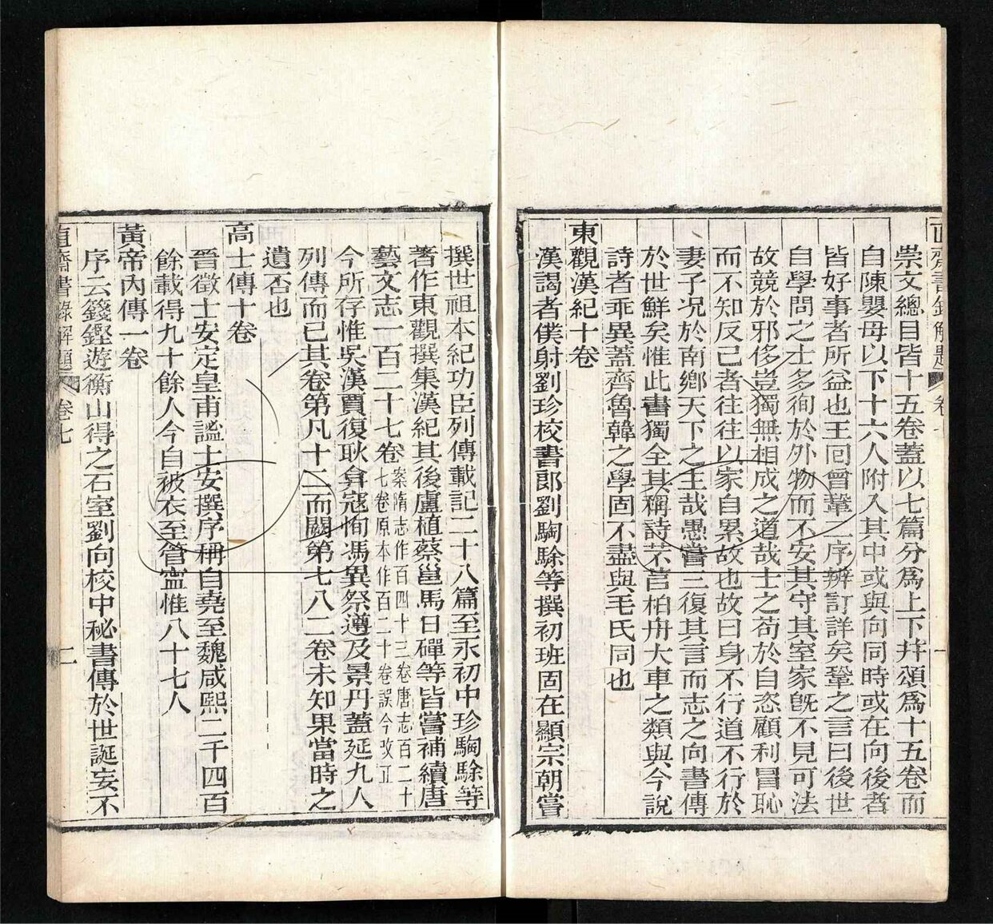 直齋書錄解題 卷七 一
崇文總目皆十五卷蓋以七篇分爲上下幷頌爲十五卷而
自陳嬰母以下十六人附入其中或與向同時或在向後者
皆好事者所益也王回曾鞏二序辨訂詳矣鞏之言曰後世
自學問之士多徇於外物而不安其守其室家旣不見可法
故競於邪侈豈獨無相成之道哉士之苟於自恣顧利冒恥
而不知反己者往往以家自累故也故曰身不行道不行於
妻子况於南鄉天下之主哉愚嘗三復其言而志之向書傳
於世鮮矣惟此書獨全其稱詩芣苢柏舟大車之類與今說
詩者乖異蓋齊魯韓之學固不盡與毛氏同也
東觀漢紀十卷
漢謁者僕射劉珍校書郎劉騊駼等撰初班固在顯宗朝嘗
撰世祖本紀功臣列傳載記二十八篇至永初中珍騊駼等
著作東觀撰集漢紀其後盧植蔡邕馬日磾等皆嘗補續唐
藝文志一百二十七卷案隋志作百四十三卷唐志百二十
七卷原本作百二十卷誤今改正
今所存惟吳漢賈復耿弇寇恂馮異祭遵及景丹蓋延九人
列傳而已其卷第凡十二而闕第七八二卷未知果當時之
遺否也
高士傳十卷
晉徵士安定皇甫謐士安撰序稱自堯至魏咸熙二千四百
餘載得九十餘人今自被衣至管寧惟八十七人
黃帝內傳一卷
序云籛鏗遊衡山得之石室劉向校中秘書傳於世誕妄不
直齋書錄解題 卷七 二